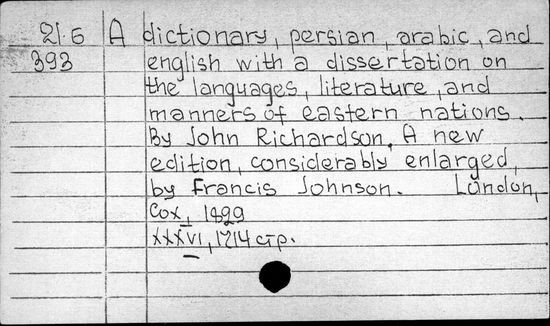 21.6 A dictionary, persian, arabic, and
393 english with a dissertation on
the languages, literature, and
manners of eastern nations.
By John Richardson. A new
edition, considerably enlarged,
by Francis Johnson. London,
Cox, 1829
XXXVI, 1714 стр.